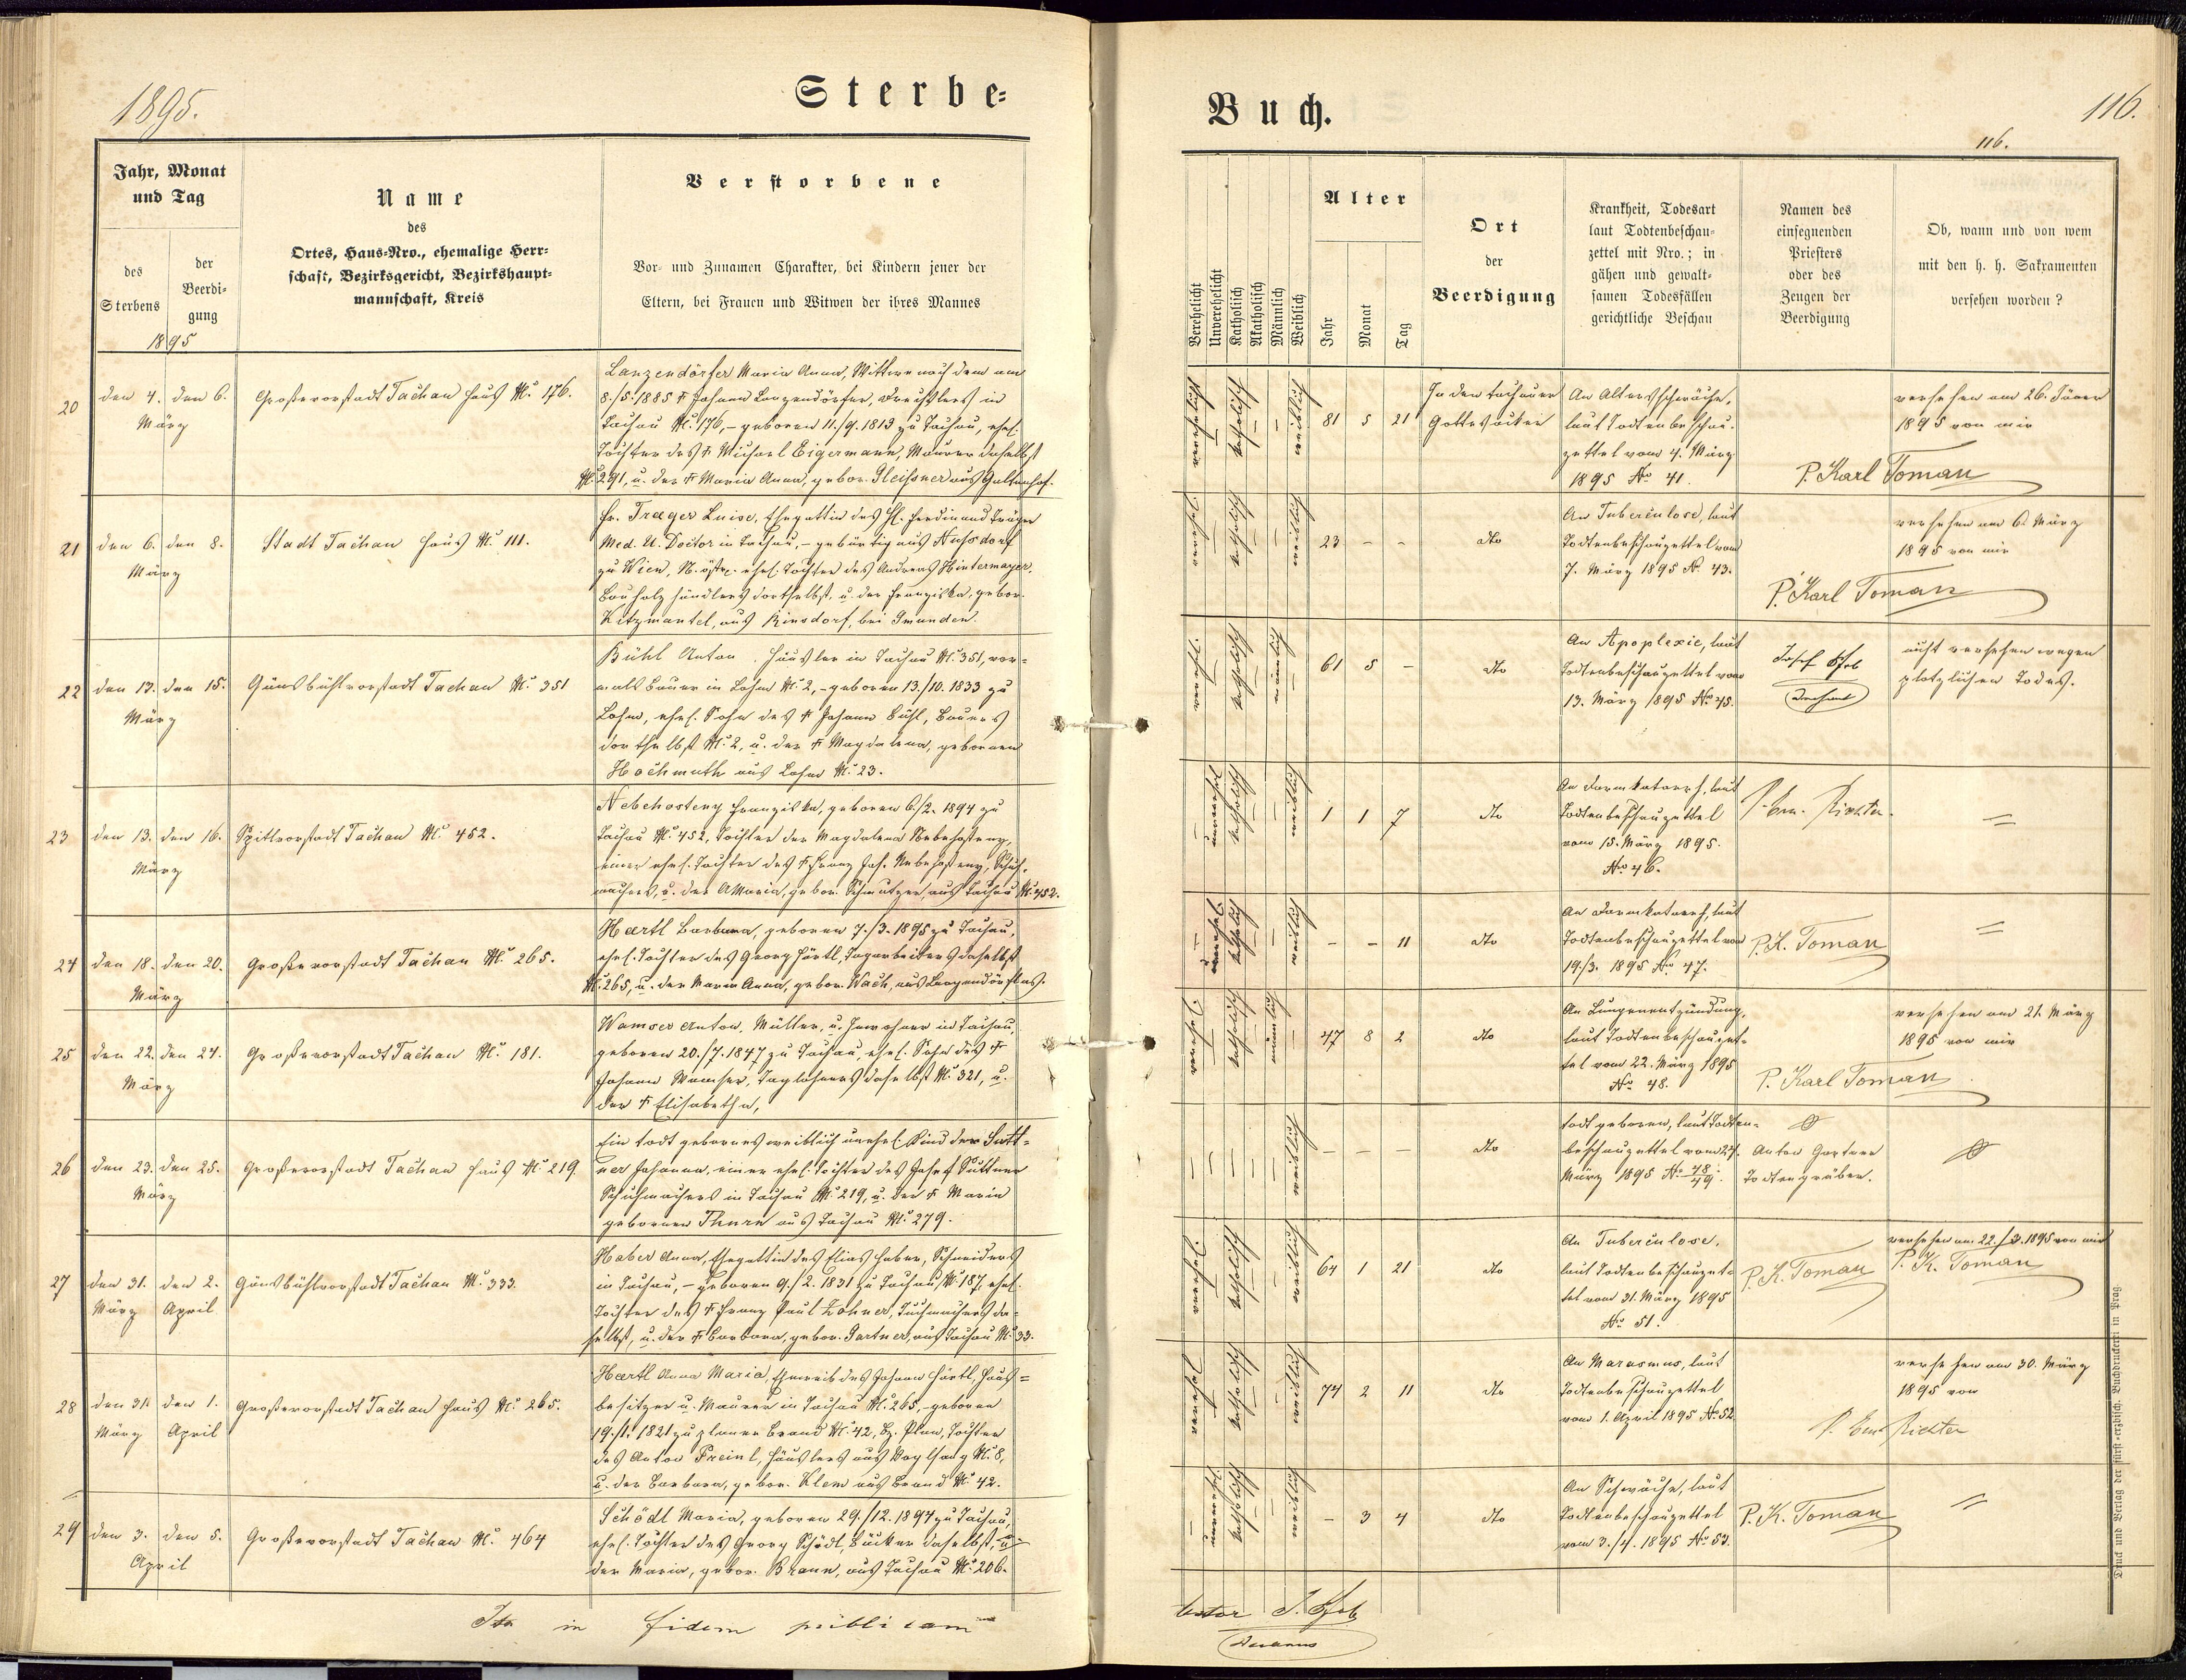 1895.
Sterbe=
Jahr, Monat
und Tag
des
Sterbens
der
Beerdi=
gung
1895
Name
des
Ortes, Haus=Nro., ehemalige Herr=
schaft, Bezirksgericht, Bezirkshaupt=
mannschaft, Kreis
Verstorbene
Vor= und Zunamen Charakter, bei Kindern jener der
Eltern, bei Frauen und Witwen der ihres Mannes
20
den 4. den 6.
März
Großevorstadt Tachau Haus N: 176.
Lanzendörfer Maria Anna, Wittwe nach dem am
8./5. 1885 † Johann Lanzendörfer, Drechslers in
Tachau N: 176, – geboren 11./9. 1813 zu Tachau, ehel.
Tochter des † Michael Eigermann, Maurer daselbst
N: 291, u. der † Maria Anna, gebor. Gleißner aus Galtenhof.
21
den 6. den 8.
März
Stadt Tachau Haus N: 111.
Fr. Traeger Luise, Ehegattin des H. Ferdinand Träger
Med. U. Doctor in Tachau, – gebürtig aus Nussdorf
zu Wien, N. östr. ehel. Tochter des Andreas Hintermayer,
Bauholzhändlers dortselbst, u. der Franziska, gebor.
Kitzmantel, aus Rinsdorf, bei Gmunden.
22
den 13. den 15.
März
Gänsbühlvorstadt Tachau N: 351
Bühl Anton, Häusler in Tachau N: 351, vor=
mals Bauer in Lohm N: 2, – geboren 13./10. 1833 zu
Lohm, ehel. Sohn des † Johann Bühl, Bauers
dortselbst N: 2, u. der † Magdalena, gebornen
Hochmuth aus Lohm N: 23.
23
den 13. den 16.
März
Spitlvorstadt Tachau N: 452.
Nebehosteny Franziska, geboren 6./2. 1894 zu
Tachau N: 452, Tochter der Magdalena Nebehosteny,
einer ehel. Tochter des † Franz Jos. Nebehosteny, Schuh=
machers, u. der AMaria, gebor. Schmutzer, aus Tachau N: 452.
24
den 18. den 20.
März
Großevorstadt Tachau N: 265.
Haertl Barbara, geboren 7./3. 1895 zu Tachau,
ehel. Tochter des Georg Härtl, Tagarbeiters daselbst
N: 265, u. der Maria Anna, gebor. Wach, aus Langendörflas.
25
den 22. den 24.
März
Großevorstadt Tachau N: 181.
Wamser Anton, Müller, u. Inwohner in Tachau,
geboren 20./7. 1847 zu Tachau, ehel. Sohn des †
Johann Wamser, Taglöhners daselbst N: 321, u.
der † Elisabetha,
26
den 23. den 25.
März
Großevorstadt Tachau Haus N: 219
Ein todt gebornes weiblich unehel. Kind der Sutt=
ner Johanna, einer ehel. Tochter des Josef Suttner
Schuhmachers in Tachau N: 219, u. der † Maria
gebornen Thurn aus Tachau N: 279.
27
den 31. den 2.
März April
Gänsbühlvorstadt Tachau N: 333.
Haber Anna, Ehegattin des Elias Haber, Schneiders
in Tachau, – geboren 9./2. 1831 zu Tachau, N: 187, ehel.
Tochter des † Franz Paul Lohner, Tuchmachers da=
selbst, u. der † Barbara, gebor. Gartner, aus Tachau N: 33.
28
den 31. den 1.
März April
Großevorstadt Tachau Haus N: 265.
Haertl Anna Maria, Eheweib des Johann Härtl, Haus=
besitzer u. Maurer in Tachau N: 265, – geboren
19./1. 1821 zu planer Brand N: 42, Bz. Plan, Tochter
des Anton Freinl, Häuslers aus Voglsang N: 8,
u. der Barbara, gebor. Klem aus Brand N: 42.
29
den 3. den 5.
April
Großevorstadt Tachau N: 464
Schödl Maria, geboren 29./12. 1894 zu Tachau,
ehel. Tochter des Georg Schödl, Bäcker daselbst, u.
der Maria, gebor. Braun, aus Tachau N: 206.
Ita in fidem publicam
Buch.
116.
116.
Verehelicht
Unverehelicht
Katholisch
Akatholisch
Männlich
Weiblich
Alter
Jahr
Monat
Tag
Ort
der
Beerdigung
Krankheit, Todesart
laut Todtenbeschau=
zettel mit Nro.; in
gähen und gewalt=
samen Todesfällen
gerichtliche Beschau
Namen des
einsegnenden
Priesters
oder des
Zeugen der
Beerdigung
Ob, wann und von wem
mit den h. h. Sakramenten
versehen worden?
verehelicht – katholisch – – weiblich
81 5 21
In den tachauer
Gottesacker
An Altersschwäche,
laut Todtenbeschau=
zettel vom 4. März
1895 No 41.
versehen am 26. Jäner
1895 von mir
P. Karl Toman
katholisch – – weiblich
23 – –
dto
An Tuberculose, laut
Todtenbeschauzettel vom
7. März 1895 N. 43.
versehen am 6. März
1895 von mir
P. Karl Toman
katholisch – männlich –
61 5 –
dto
An Apoplexie, laut
Todtenbeschauzettel vom
13. März 1895 No 45.
Josef
Dechant
nicht versehen wegen
plötzlichen Todes.
– unverehel. katholisch – – weiblich
1 1 7
dto
An Darmkatarrh, laut
Todtenbeschauzettel
vom 15. März 1895.
No 46.
P. Em. Richter.
=
– unverehel. katholisch – – weiblich
– – 11
dto
An Darmkatarrh, laut
Todtenbeschauzettel vom
19./3. 1895 No 47.
P. K. Toman
=
katholisch – männlich –
47 8 2
dto
An Lungenentzündung,
laut Todtenbeschauzet=
tel vom 22. März 1895
No 48.
versehen am 21. März
1895 von mir
P. Karl Toman
– – – – – weiblich
– – –
dto
todt geboren, laut Todten=
beschauzettel vom 24.
März 1895 No 48/49.
Anton Gartner
Todtengräber.
katholisch – – weiblich
64 1 21
dto
An Tuberculose,
laut Todtenbeschauzet=
tel vom 31. März 1895
No 51.
P. K. Toman
versehen am 22./3. 1895 von mir
P. K. Toman
katholisch – – weiblich
74 2 11
dto
An Marasmus, laut
Todtenbeschauzettel
vom 1. April 1895 No 52
versehen am 30. März
1895 von
P. Em. Richter
– unverehel. katholisch – – weiblich
– 3 4
dto
An Schwäche, laut
Todtenbeschauzettel
vom 3./4. 1895 No 53.
P. K. Toman
=
testor J.
Decanus
Druck und Verlag der fürst=erzbisch. Buchdruckerei in Prag.